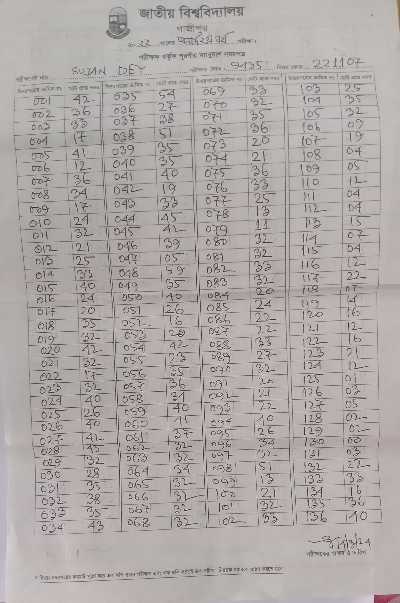 জাতীয় বিশ্ববিদ্যালয়
গাজীপুর
পরীক্ষক কর্তৃক পূরণীয় ম্যানুয়াল নম্বরপত্র
SUJAN DEY 221107
001 42 035 54 069 33 103 25
002 36 036 27 070 32 104 35
003 33 037 38 071 35 105 32
004 17 038 51 072 36 106 09
005 41 039 35 073 20 107 19
006 12 040 35 074 21 108 04
007 36 041 40 075 36 109 05
008 34 042 19 076 33 110 12
009 17 043 33 077 25 111 04
010 24 044 45 078 13 112 04
011 32 045 42 079 11 113 15
012 21 046 39 080 32 114 07
013 25 047 05 081 32 115 04
014 33 048 59 082 33 116 12
015 40 049 35 083 32 117 22
016 24 050 40 084 20 118 07
017 20 051 26 085 24 119 14
018 35 052 16 086 22 120 16
019 32 053 087 22 121 12
020 42 054 42 088 33 122 16
021 32 055 23 089 27 123 21
022 056 35 090 32 124 12
023 32 057 36 091 20 125 01
024 40 058 31 092 126 03
025 26 059 40 093 22 127 05
026 40 060 094 10 128 02
027 42 061 37 095 26 129 02
028 062 32 096 34 130 00
029 32 063 32 097 32 131 03
030 38 064 34 098 51 132 22
031 35 065 32 099 13 133 33
032 38 066 32 100 21 134 16
033 35 067 32 101 32 135 36
034 43 068 32 102 33 136 40